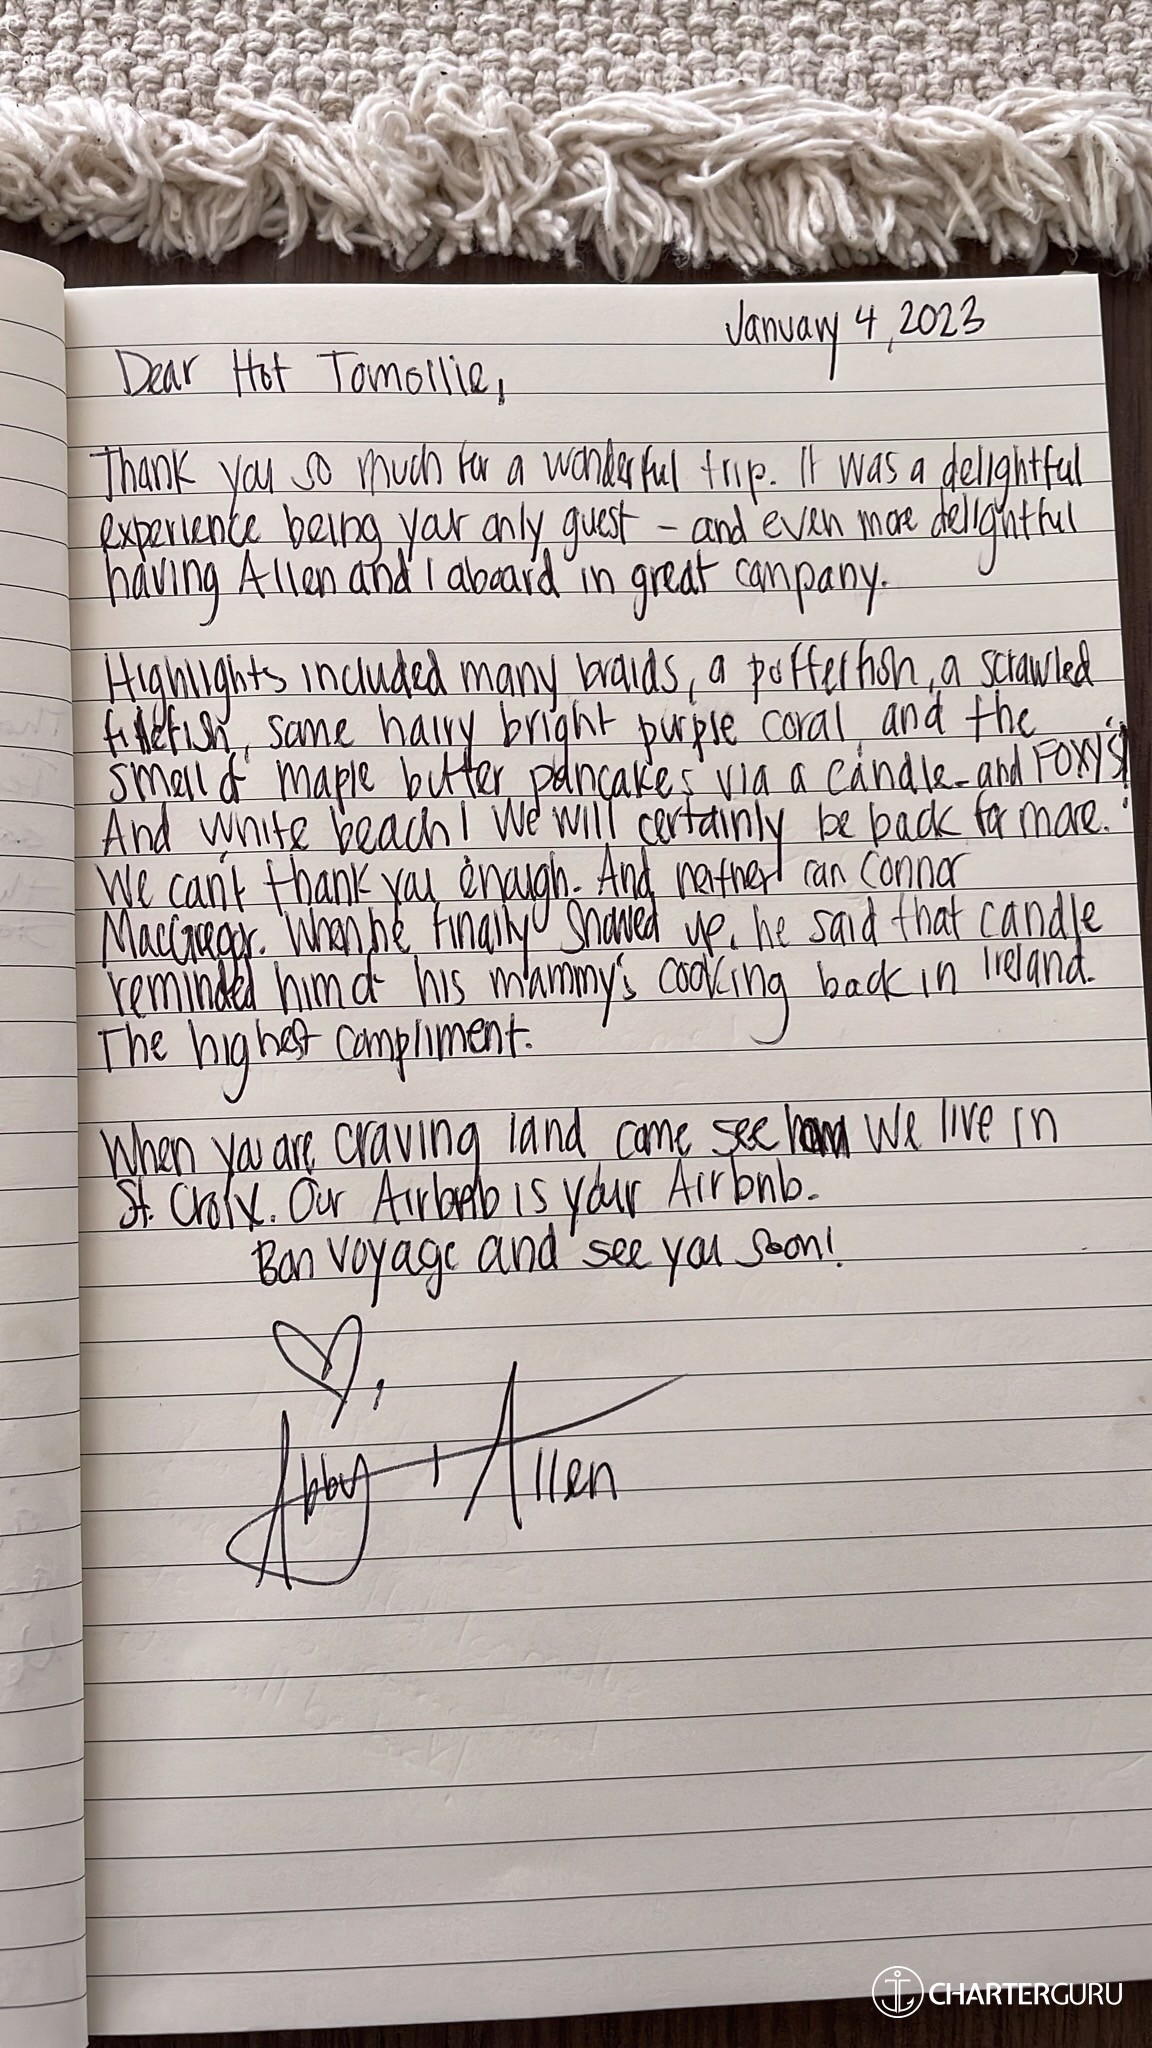 January 4, 2023
Dear Hot Tomollie,
Thank you so much for a wonderful trip. It was a delightful
experience being your only guest – and even more delightful
having Allen and I aboard in great company.
Highlights included many braids, a pufferfish, a scrawled
filefish, some hairy bright purple coral, and the
smell of maple butter pancakes via a candle – and FOXY'S!
And White beach! We will certainly be back for more.
We can't thank you enough. And neither can Connor
MacGregor. When he finally showed up, he said that candle
reminded him of his mammy's cooking back in Ireland.
The highest compliment.
When you are craving land come see how we live in
St. Croix. Our Airbnb is your Airbnb.
Bon voyage and see you soon!
♡,
Abby + Allen
CHARTERGURU